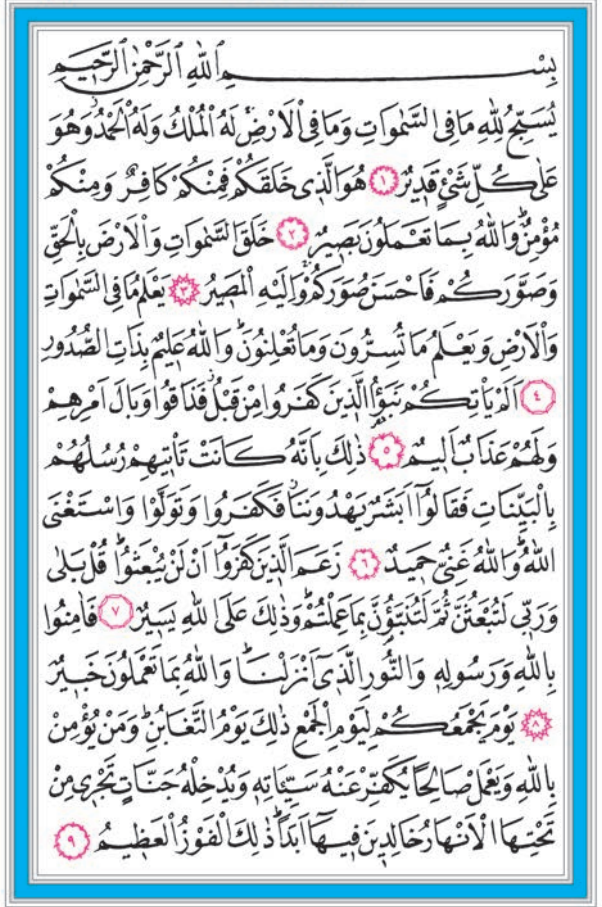 بِسْمِ اللّٰهِ الرَّحْمٰنِ الرَّحٖيمِ
يُسَبِّحُ لِلّٰهِ مَا فِي السَّمٰوَاتِ وَمَا فِي الْاَرْضِۚ لَهُ الْمُلْكُ وَلَهُ الْحَمْدُۘ وَهُوَ
عَلٰى كُلِّ شَيْءٍ قَدٖيرٌ ١ هُوَ الَّذٖي خَلَقَكُمْ فَمِنْكُمْ كَافِرٌ وَمِنْكُمْ
مُؤْمِنٌۜ وَاللّٰهُ بِمَا تَعْمَلُونَ بَصٖيرٌ ٢ خَلَقَ السَّمٰوَاتِ وَالْاَرْضَ بِالْحَقِّ
وَصَوَّرَكُمْ فَاَحْسَنَ صُوَرَكُمْۚ وَاِلَيْهِ الْمَصٖيرُ ٣ يَعْلَمُ مَا فِي السَّمٰوَاتِ
وَالْاَرْضِ وَيَعْلَمُ مَا تُسِرُّونَ وَمَا تُعْلِنُونَۜ وَاللّٰهُ عَلٖيمٌ بِذَاتِ الصُّدُورِ
٤ اَلَمْ يَأْتِكُمْ نَبَؤُا الَّذٖينَ كَفَرُوا مِنْ قَبْلُۘ فَذَاقُوا وَبَالَ اَمْرِهِمْ
وَلَهُمْ عَذَابٌ اَلٖيمٌ ٥ ذٰلِكَ بِاَنَّهُ كَانَتْ تَأْتٖيهِمْ رُسُلُهُمْ
بِالْبَيِّنَاتِ فَقَالُٓوا اَبَشَرٌ يَهْدُونَنَاۘ فَكَفَرُوا وَتَوَلَّوْا وَاسْتَغْنَى
اللّٰهُۜ وَاللّٰهُ غَنِيٌّ حَمٖيدٌ ٦ زَعَمَ الَّذٖينَ كَفَرُٓوا اَنْ لَنْ يُبْعَثُواۜ قُلْ بَلٰى
وَرَبّٖي لَتُبْعَثُنَّ ثُمَّ لَتُنَبَّؤُنَّ بِمَا عَمِلْتُمْۜ وَذٰلِكَ عَلَى اللّٰهِ يَسٖيرٌ ٧ فَاٰمِنُوا
بِاللّٰهِ وَرَسُولِهٖ وَالنُّورِ الَّذٖٓي اَنْزَلْنَاۜ وَاللّٰهُ بِمَا تَعْمَلُونَ خَبٖيرٌ
٨ يَوْمَ يَجْمَعُكُمْ لِيَوْمِ الْجَمْعِ ذٰلِكَ يَوْمُ التَّغَابُنِۜ وَمَنْ يُؤْمِنْ
بِاللّٰهِ وَيَعْمَلْ صَالِحًا يُكَفِّرْ عَنْهُ سَيِّـَٔاتِهٖ وَيُدْخِلْهُ جَنَّاتٍ تَجْرٖي مِنْ
تَحْتِهَا الْاَنْهَارُ خَالِدٖينَ فٖيهَٓا اَبَدًاۜ ذٰلِكَ الْفَوْزُ الْعَظٖيمُ ٩